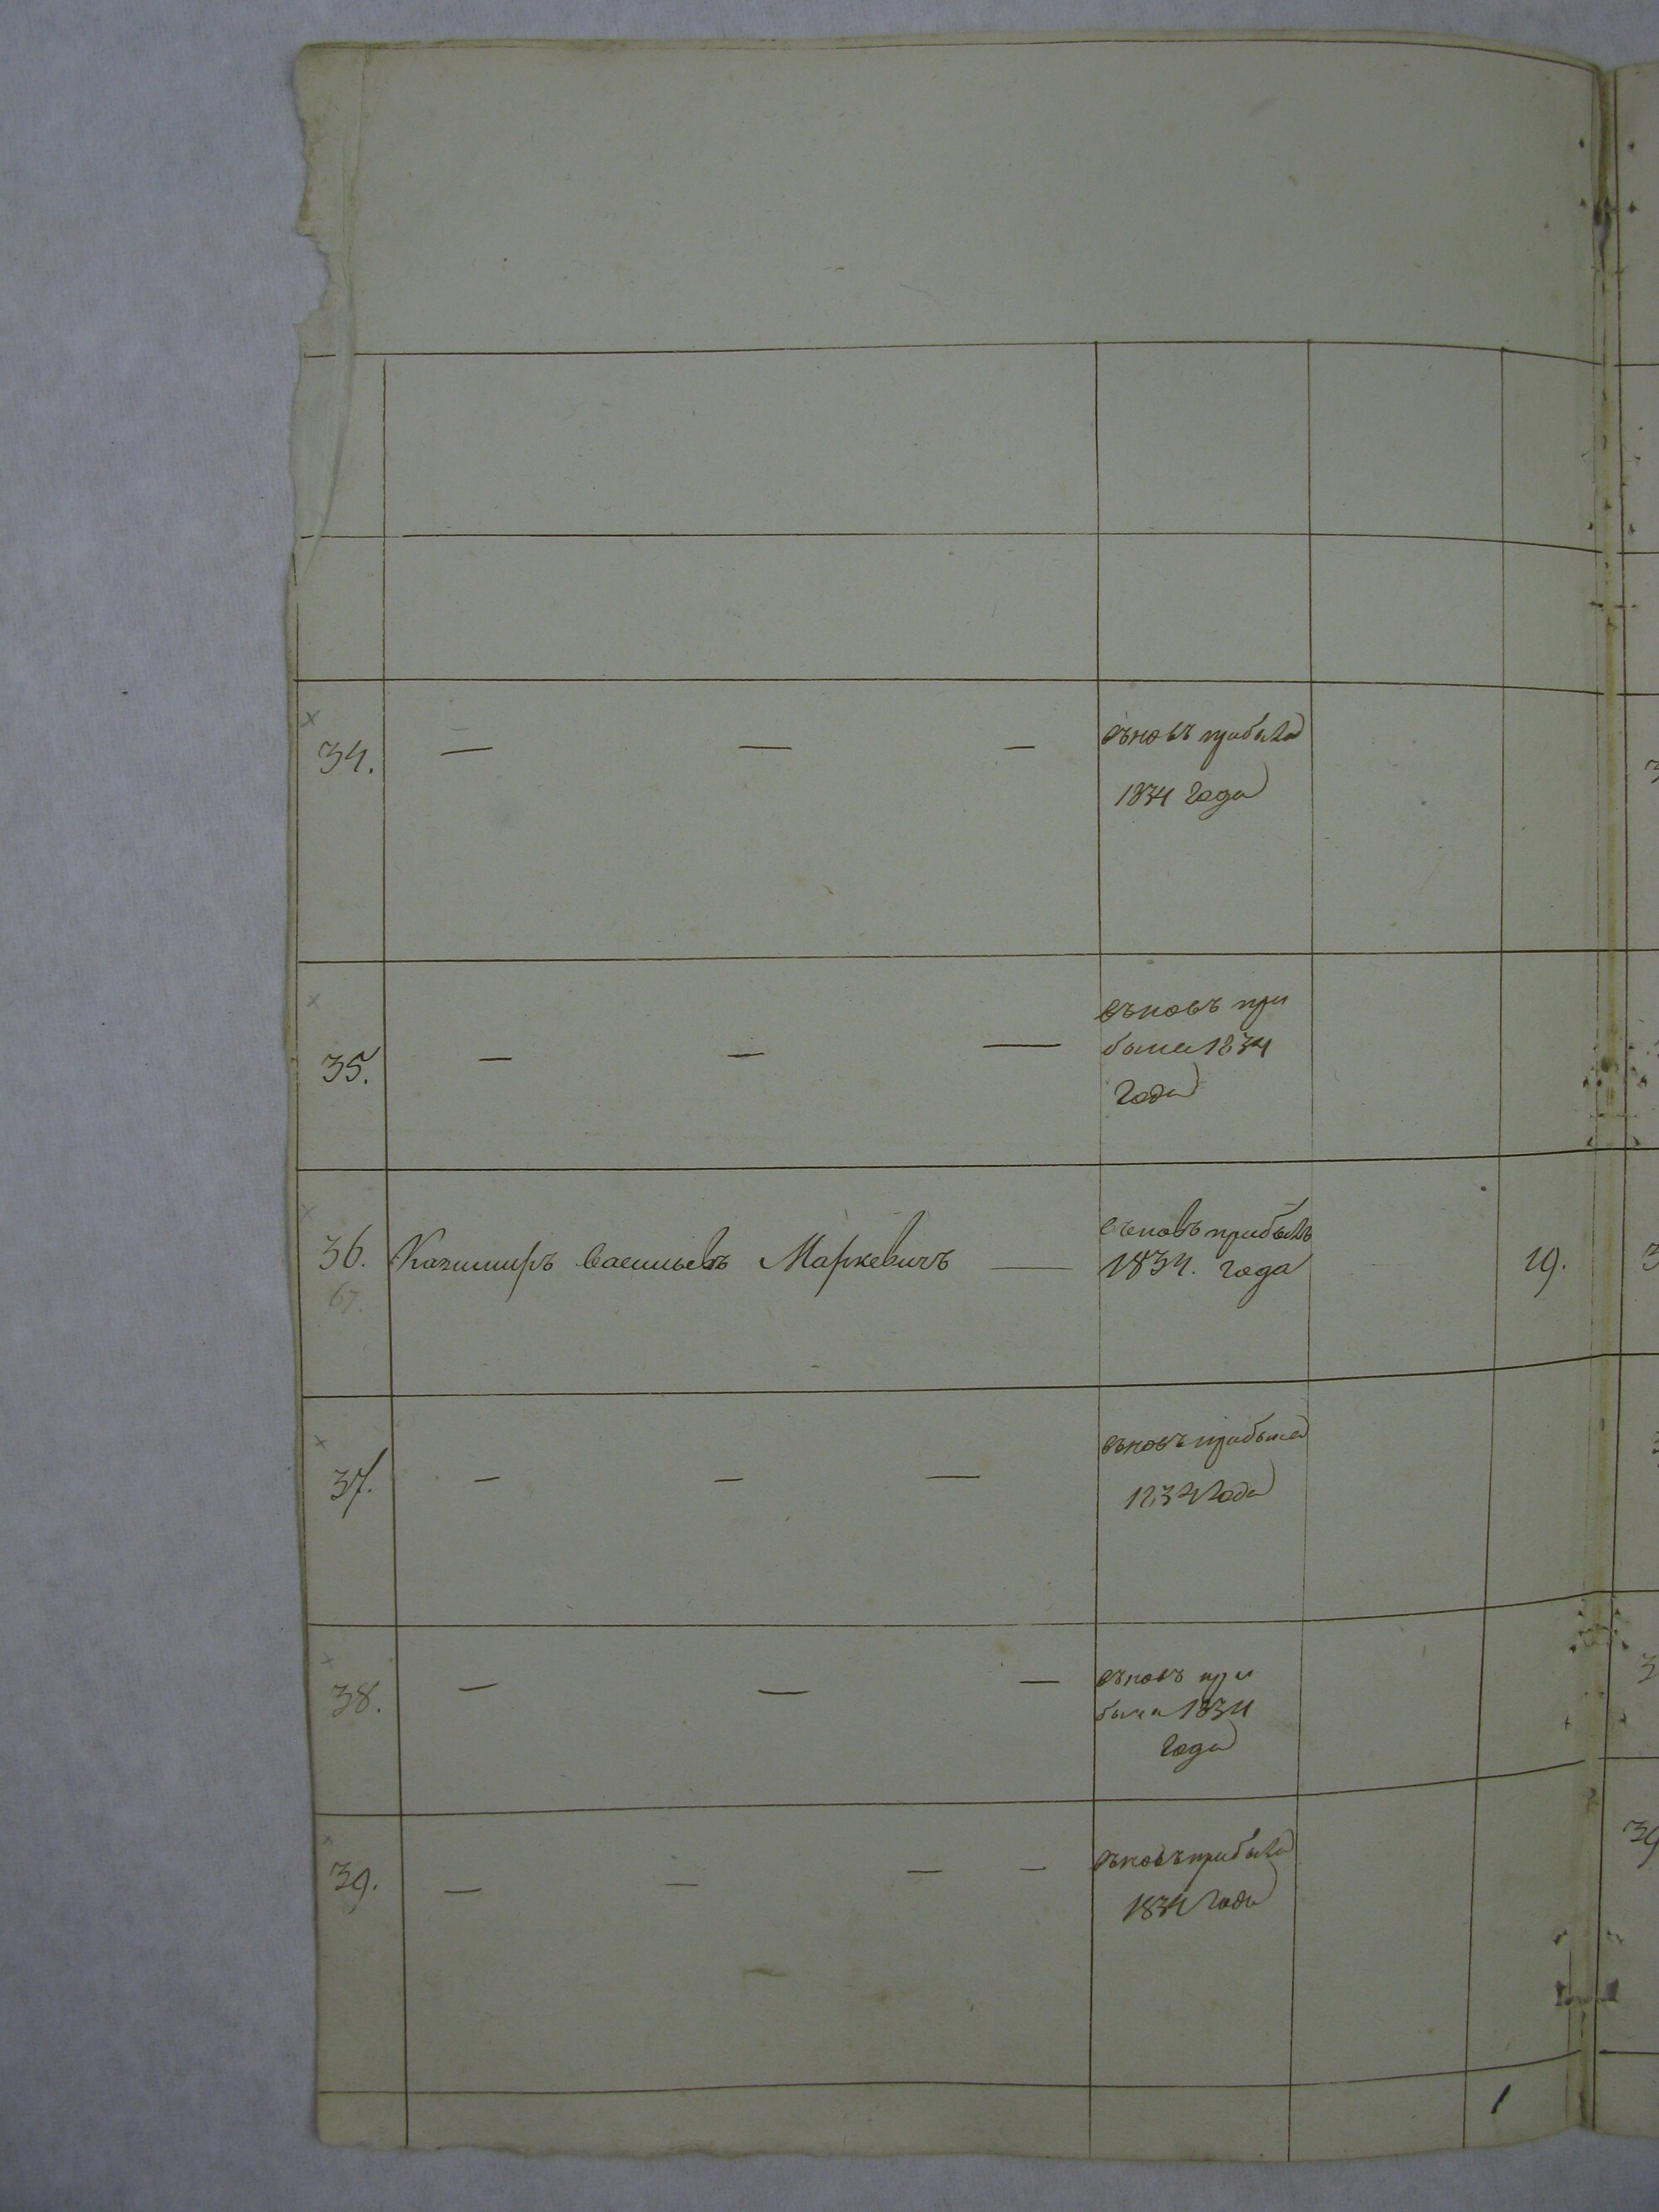 34. — — — вновь прибыла
1834 года
35. — — — вновь при
была 1834
года
36. Казимиръ Васильевъ Маркевичъ — вновь прибылъ
1834. года 19.
67.
37. — — — вновь прибыла
1834 года
38. — — — вновь при
была 1834
года
39. — — — — вновь прибыла
1834 года
1